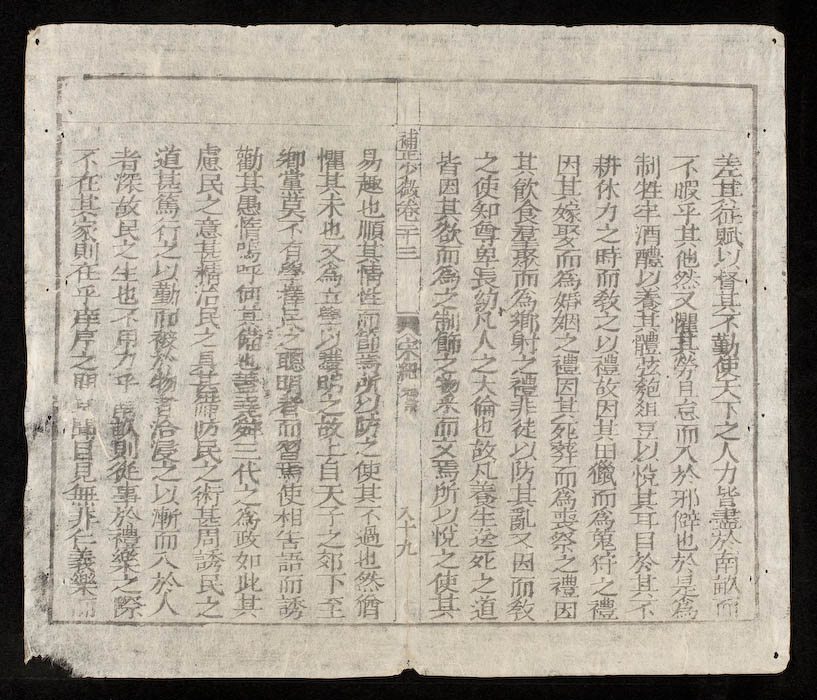 差其征賦以督其不勤使天下之人力皆盡於南畝而
不暇乎其他然又懼其勞且怠而入於邪僻也於是為
制牲牢酒醴以養其體絃匏俎豆以悅其耳目於其不
耕休力之時而教之以禮故因其田獵而為蒐狩之禮
因其嫁娶而為婚姻之禮因其死葬而為喪祭之禮因
其飲食羣聚而為鄉射之禮非徒以防其亂又因而教
之使知尊卑長幼凡人之大倫也故凡養生送死之道
皆因其欲而為之制飾之物采而文焉所以悅之使其
補正少微卷二十三
宋紀
八十九
易趣也順其情性而節焉所以防之使其不過也然猶
懼其未也又為立學以講明之故上自天子之郊下至
鄉黨莫不有學擇民之聰明者而習焉使相告語而誘
勸其愚惰嗚呼何其備也蓋堯舜三代之為政如此其
慮民之意甚精治民之具甚備防民之術甚周誘民之
道甚篤行之以勤而被於物者洽浸之以漸而入於人
者深故民之生也不用力乎南畝則從事於禮樂之際
不在其家則在乎庠序之間耳聞目見無非仁義樂而